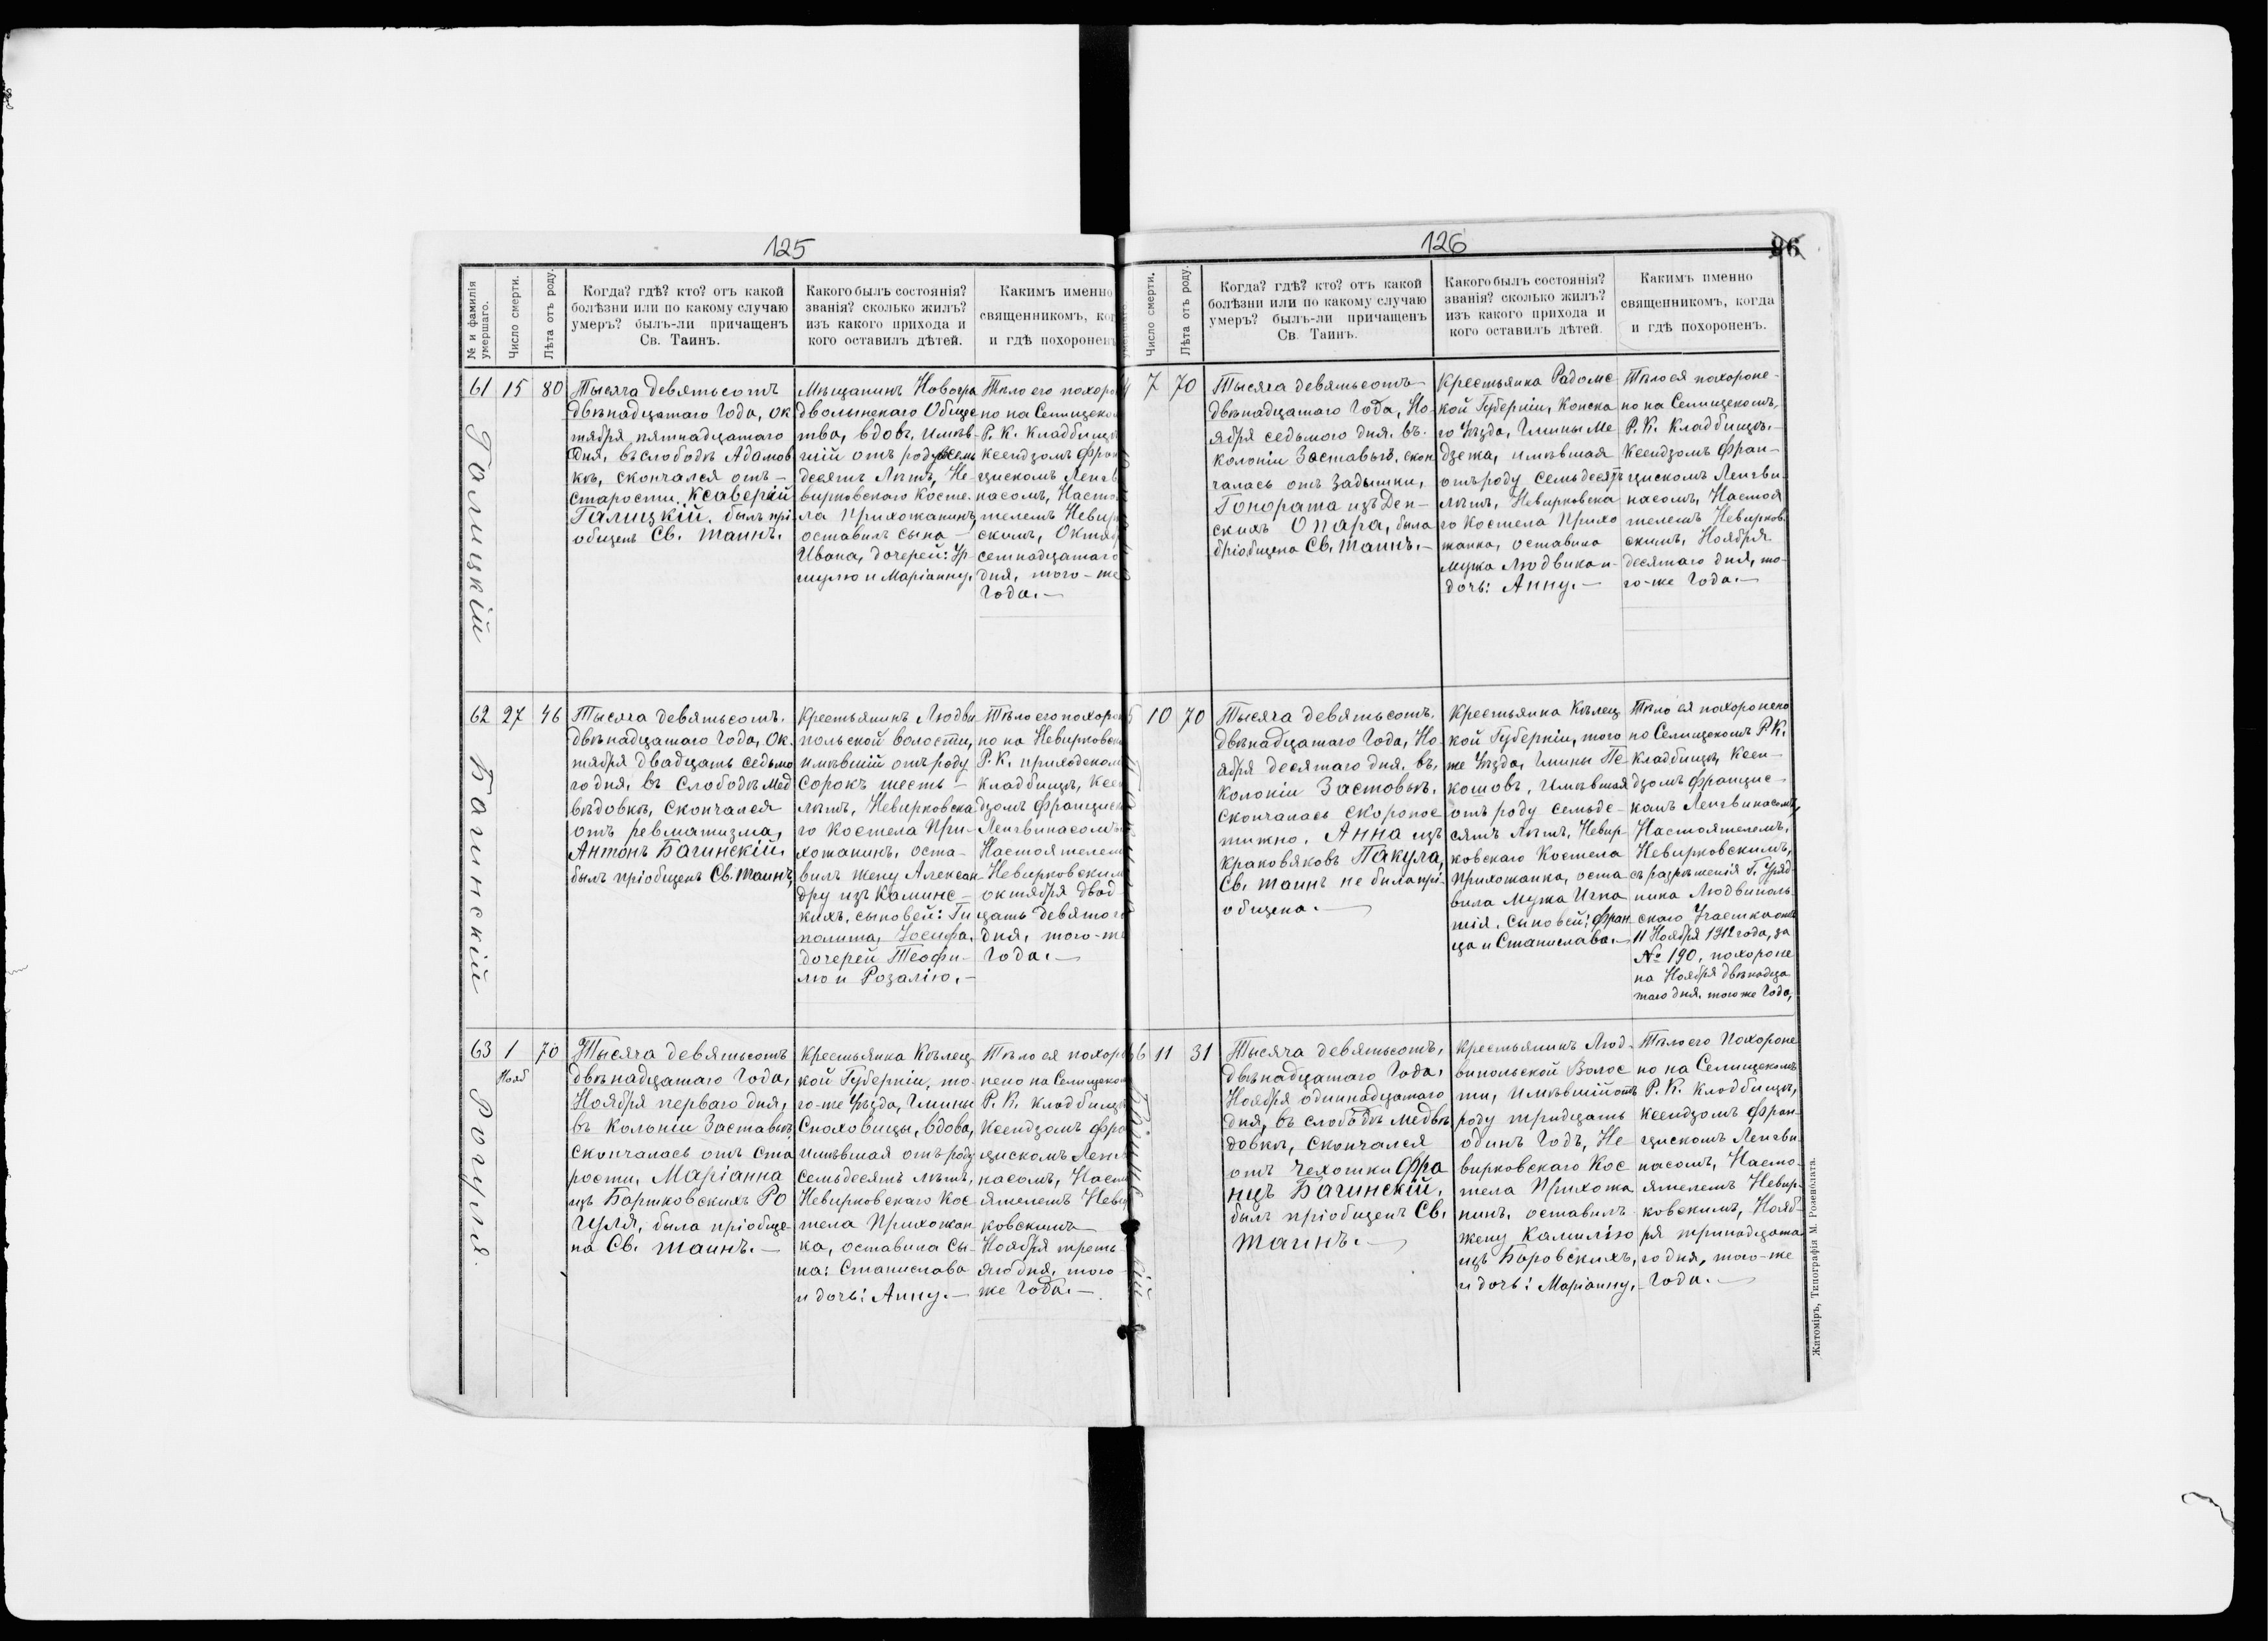 125
№ и фамилія умершаго.
Число смерти.
Лѣта отъ роду.
Когда? гдѣ? кто? отъ какой
болѣзни или по какому случаю
умеръ? былъ-ли причащенъ
Св. Таинъ.
Какого былъ состоянія?
званія? сколько жилъ?
изъ какого прихода и
кого оставилъ дѣтей.
Какимъ именно
священникомъ, ког
и гдѣ похоронен
61 15 80
Галицкій
Тысяча девятьсотъ
двѣнадцатаго Года, Ок
тября пятнадцатаго
дня, въ слободѣ Адамов
кѣ, скончался отъ –
старости, Ксаверій
Галицкій. былъ прі
общенъ Св. таинъ.
Мѣщанинъ Новогра
дволынскаго Общес
тва, вдовъ, имѣв
шій отъ роду восемь
десятъ Лѣтъ, Не-
вирковскаго Косте.
ла Прихожанинъ,
оставилъ сына –
Ивана, дочерей: Ур-
шулю и Маріанну.
Тѣло его похоро
но на Селищеко
Р. К. Кладбищѣ
Ксендзомъ Фран
цискомъ Ленгв
насомъ, Насто
телемъ Невир
скимъ, Октяб
семнадцатаго
дня, того-же
Года. —
62 27 46
Багинскій
Тысяча девятьсотъ.
двѣнадцатаго Года, Ок.
тября двадцать седьмо
го дня, въ Слободѣ Мед
вѣдовкѣ, Скончался
отъ ревматизма,
Антонъ Багинскій.
былъ пріобщенъ Св. таинъ,
Крестьянинъ Людви
польской волости,
имѣвшій отъ роду
сорокъ шесть –
лѣтъ, Невирковска
го Костела При-
хожанинъ, оста-
вилъ жену Алексан-
дру изъ Каминс-
кихъ, сыновей: Ги
полита, Іосифа,
дочерей Теофи-
лю и Розалію. –
Тѣло его похоро
но на Невирковск
Р. К. приходском
кладбищѣ, Ксен
дзомъ Франциск
Ленгвинасомъ
Настоятелем
Невирковским
октября двад
цать девятог
дня, того-же
Года. —
63 1 70
Нояб
Рогуля.
Тысяча девятьсотъ
двѣнадцатаго Года,
Ноября перваго дня,
въ Колоніи Заставьѣ,
скончалась отъ ста
рости, Маріанна
изъ Бартковскихъ Ро
гуля, была пріобще-
на Св. таинъ. —
Крестьянка Кѣлец
кой Губерніи, то-
го-же Уѣзда, Гмины
Сноховицы, вдова,
имѣвшая отъ роду
семьдесятъ лѣтъ,
Невирковскаго Кос-
тела Прихожан
ка, оставила сы-
на: Станислава
и дочь: Анну. —
Тѣло ея похоро
нено на Селищеко
Р. К. кладбищѣ
Ксендзомъ Фра
цискомъ Ленг
насомъ, Насто
ятелемъ Невир
ковскимъ
Ноября треть-
яго дня, того-
же Года. —
126
96
Число смерти.
Лѣта отъ роду.
Когда? гдѣ? кто? отъ какой
болѣзни или по какому случаю
умеръ? былъ-ли причащенъ
Св. Таинъ.
Какого былъ состоянія?
званія? сколько жилъ?
изъ какого прихода и
кого оставилъ дѣтей.
Какимъ именно
священникомъ, когда
и гдѣ похороненъ.
7 70
Тысяча девятьсотъ
двѣнадцатаго Года, Но-
ября седьмого дня. въ.
колоніи Заставьѣ. скон
чалась отъ Задышки,
Гонората изъ Ден-
скихъ Опара, была
пріобщена Св. таинъ. –
Крестьянка Радомс
кой Губерніи, Конска
го Уѣзда, Гмины Ме
дзежа, имѣвшая
отъ роду семьдесятъ
лѣтъ, Невирковска
го Костела Прихо
жанка, оставила
мужа Людвика и
дочь: Анну. —
Тѣло ея похороне-
но на Селищекомъ,
Р. К. Кладбищѣ. –
Ксендзомъ Фран-
цискомъ Ленгви-
насомъ, Настоя
телемъ Невирков.
скимъ, Ноября
десятаго дня, то-
го-же Года. —
10 70
Тысяча девятьсотъ.
двѣнадцатаго Года, Но-
ября десятаго дня. въ.
колоніи Застовьѣ.
скончалась скоропос
тижно. Анна изъ
Краковяковъ Пакула,
Св. таинъ не была прі-
общена. —
Крестьянка Кѣлец
кой Губерніи, того
же Уѣзда, Гмини Пе
кошовъ, имѣвшая
отъ роду семьде-
сятъ лѣтъ, Невир-
ковскаго Костела
Прихожанка, оста
вила Мужа Игна
тія. Сыновей: Фран-
ца и Станислава. –
Тѣло ея похоронено
на Селищекомъ Р. К.
Кладбищѣ, Ксен-
дзомъ Францис-
комъ Ленгвинасомъ,
Настоятелемъ,
Невирковскимъ,
съ разрѣшенія Г. Уряд
ника Людвиполь
скаго Участка отъ
11 Ноября 1912 года, за
№ 190, похороне
на Ноября двѣнадца
таго дня. того же Года,
66 11 31
Тысяча девятьсотъ,
двѣнадцатаго Года,
Ноября одиннадцатаго
дня, въ слободѣ медвѣ
довкѣ, скончался
отъ чехотки Фра
нцъ Багинскій.
былъ пріобщенъ Св.
таинъ. —
Крестьянинъ Люд-
випольской Волос
ти, имѣвшій отъ
роду тридцать
одинъ Годъ, Не
вирковскаго Кос
тела Прихожа
нинъ, оставилъ
жену Камилію
изъ Боровскихъ,
и дочь: Маріанну.
Тѣло его Похороне
но на Селищекомъ
Р. К. кладбищѣ,
ксендзомъ Фран-
цискомъ Ленгви-
насомъ, Насто-
ятелемъ Невир-
ковскимъ, Нояб-
ря тринадцата
го дня, того-же
Года. —
Житоміръ, Типографія М. Розенблата.